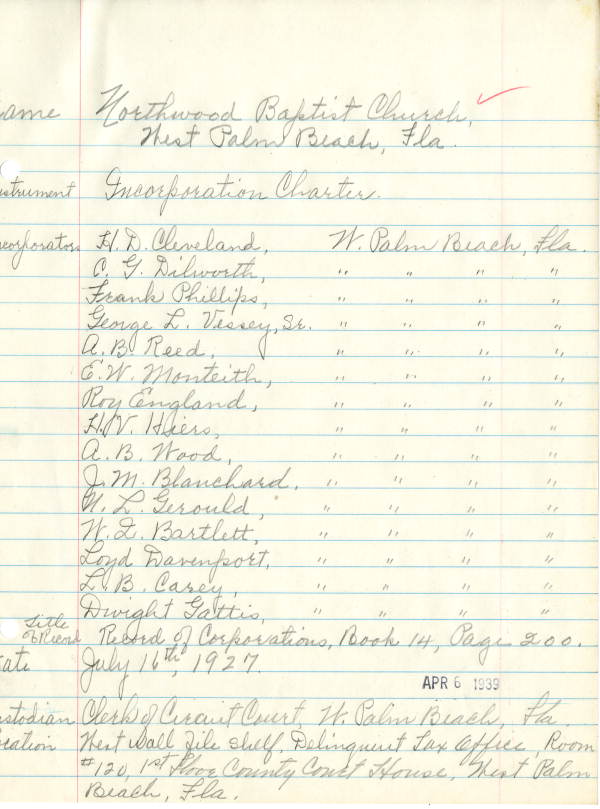 ame Northwood Baptist Church,
West Palm Beach, Fla.
strument Incorporation Charter.
corporators H. D. Cleveland, W. Palm Beach, Fla.
C. G. Dilworth, " " " "
Frank Phillips, " " " "
George L. Vessey, Sr. " " " "
A. B. Reed, " " " "
E. W. Monteith, " " " "
Roy England, " " " "
H. V. Hiers, " " " "
A. B. Wood, " " " "
J. M. Blanchard. " " " "
L. Gerould, " " " "
W. I. Bartlett, " " " "
Loyd Davenport, " " " "
L. B. Carey, " " " "
Dwight Gattis, " " " "
Title of Record Record of Corporations, Book 14, Page 200.
ate July 16th, 1927.
APR 6 1939
stodian Clerk of Circuit Court, W. Palm Beach, Fla.
cation West Wall File Shelf, Delinquent Tax Office, Room
#120, 1st Floor County Court House, West Palm
Beach, Fla.